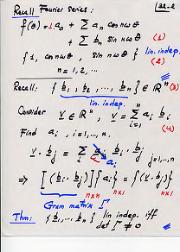 Recall Fourier series: 22-2
f(θ) = a₀ + Σ aₙ cos nωθ
+ Σ bₙ sin nωθ (1)
{1, cos nωθ, sin nωθ} lin. indep. (2)
n = 1, 2, ...
Recall: {b₁, b₂, ..., bₙ} ∈ ℝⁿ (3)
lin. indep.
Consider v ∈ ℝⁿ, v = Σ aᵢ bᵢ
Find aᵢ, i=1,..,n. (4)
v · bⱼ = Σ aᵢ bᵢ · bⱼ j=1,..,n
⇒ [(bᵢ · bⱼ)]{aᵢ} = {(v · bⱼ)}
n×n n×1 n×1
Gram matrix Γ
Thm: {b₁,..,bₙ} lin. indep. iff
det Γ ≠ 0